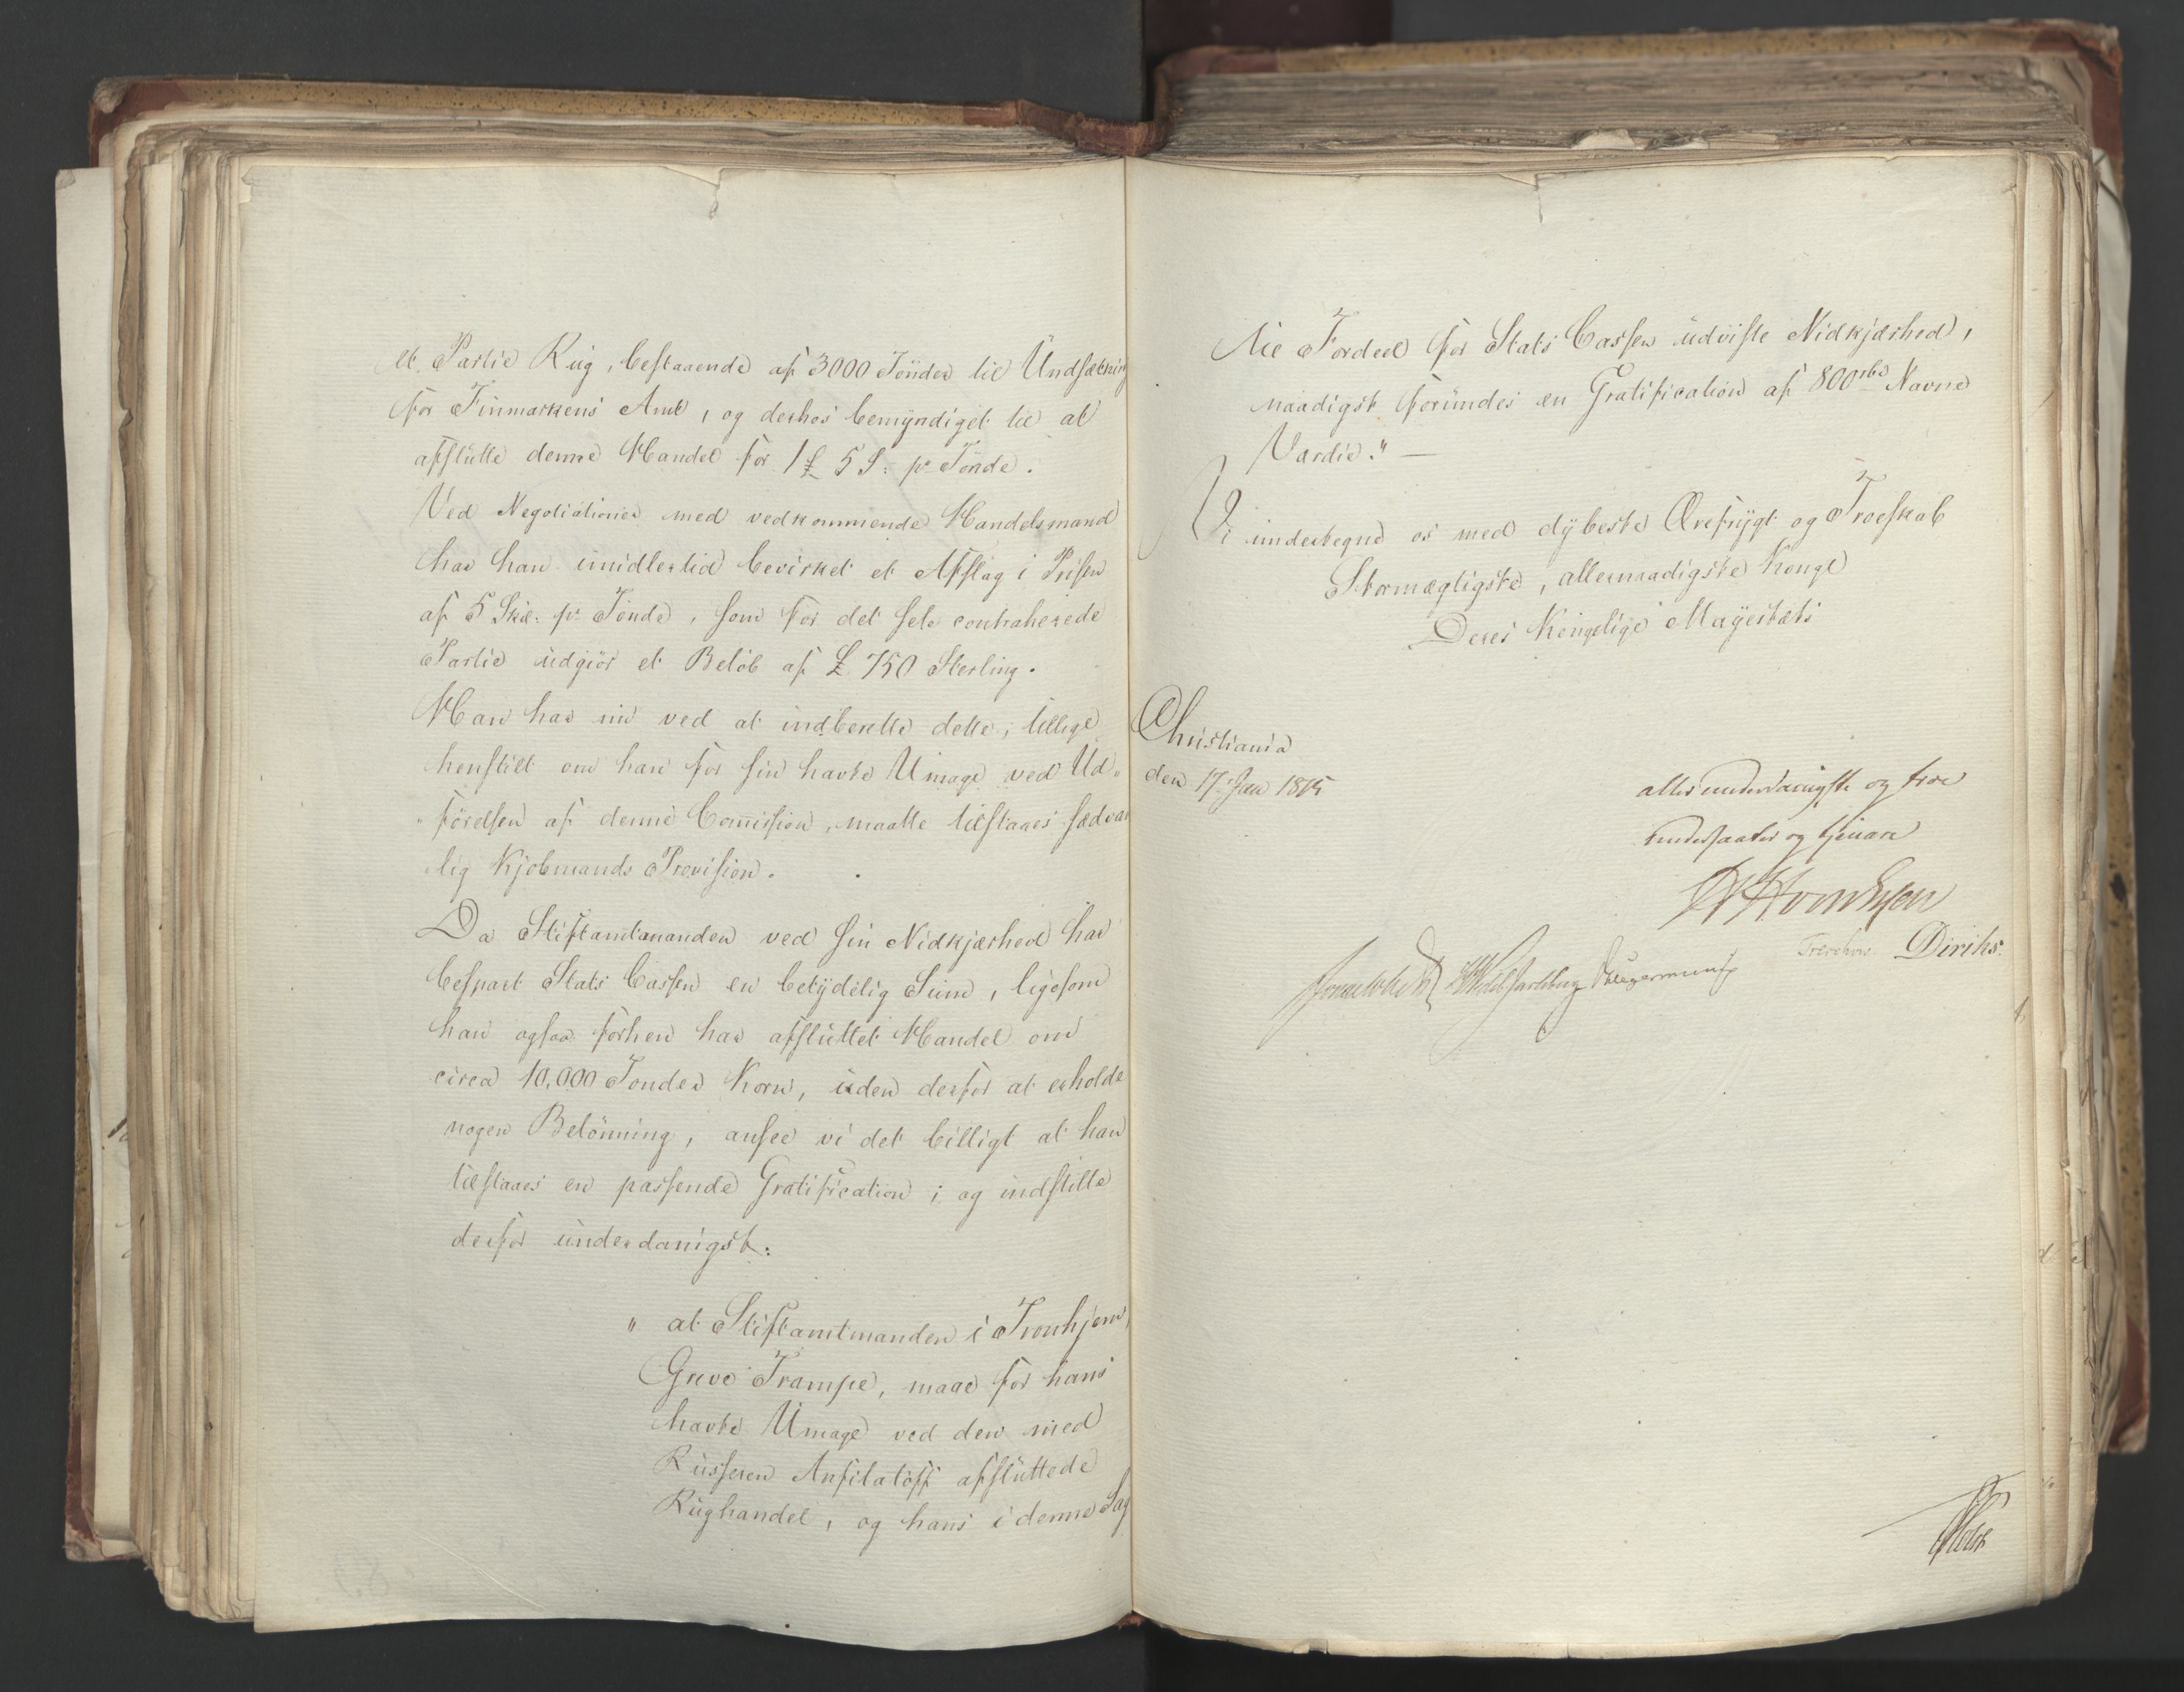 et Partie Rug, bestaaende af 3000 Tönder til Undsætning
for Finmarkens Amt, og derhos bemyndiget til at
afslutte denne Handel for 1 £ 5 S: pr Tönde.
Ved Negotiationer med vedkommende Handelsmand
har han imidlertid bevirket et Afslag i Prisen
af 5 Skil: pr Tönde, som for det hele contraherede
Partie udgiör et Belöb af £ 750 Sterling.
Han har nu ved at indberette dette, tillige
henstilt om han for sin havte Umage ved Ud-
"förelsen af denne Comission, maatte tilstaaes sædvan
lig Kjøbmands Provision.
Da Stiftamtmanden ved sin Nidkjærhed har
bespart Stats Cassen en betydelig Sum, ligesom
han ogsaa forhen har afsluttet Handel om
circa 10,000 Tönder Korn, uden derfor at erholde
nogen Belönning, ansee vi det billigt at han
tilstaaes en passende Gratification; og indstille
derfor underdanigst:
" at Stiftamtmanden i Tronhjem,
Greve Trampe, maae for hans
havte Umage ved den med
Russeren Anfilatoff afsluttede
Rughandel, og hans i denne Sag
til Fordeel for Stats Cassen udviste Nidkjærhed,
naadigst forundes en Gratification af 800 rbd Navne
Værdie." —
Vi undertegne os med dybeste Ærefrygt og Troeskab
Stormægtigste, allernaadigste Konge
Deres Kongelige Mayestæts
Christiania
den 17 Jan 1815
allerunderdanigste og troe
undersaatter og tjenere
Treschow Diriks.
Holst